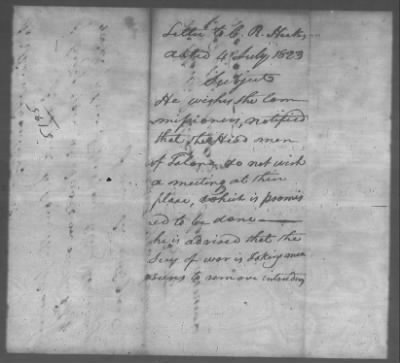 Letter to C. R. Hicks,
dated 4 July, 1823
Subject
He wishes the Com
missioners, notified
that the Head men
of Talony do not wish
a meeting at their
place, which is promis
ed to be done —
he is advised that the
Secy of war is taking mea
sures to remove intruders